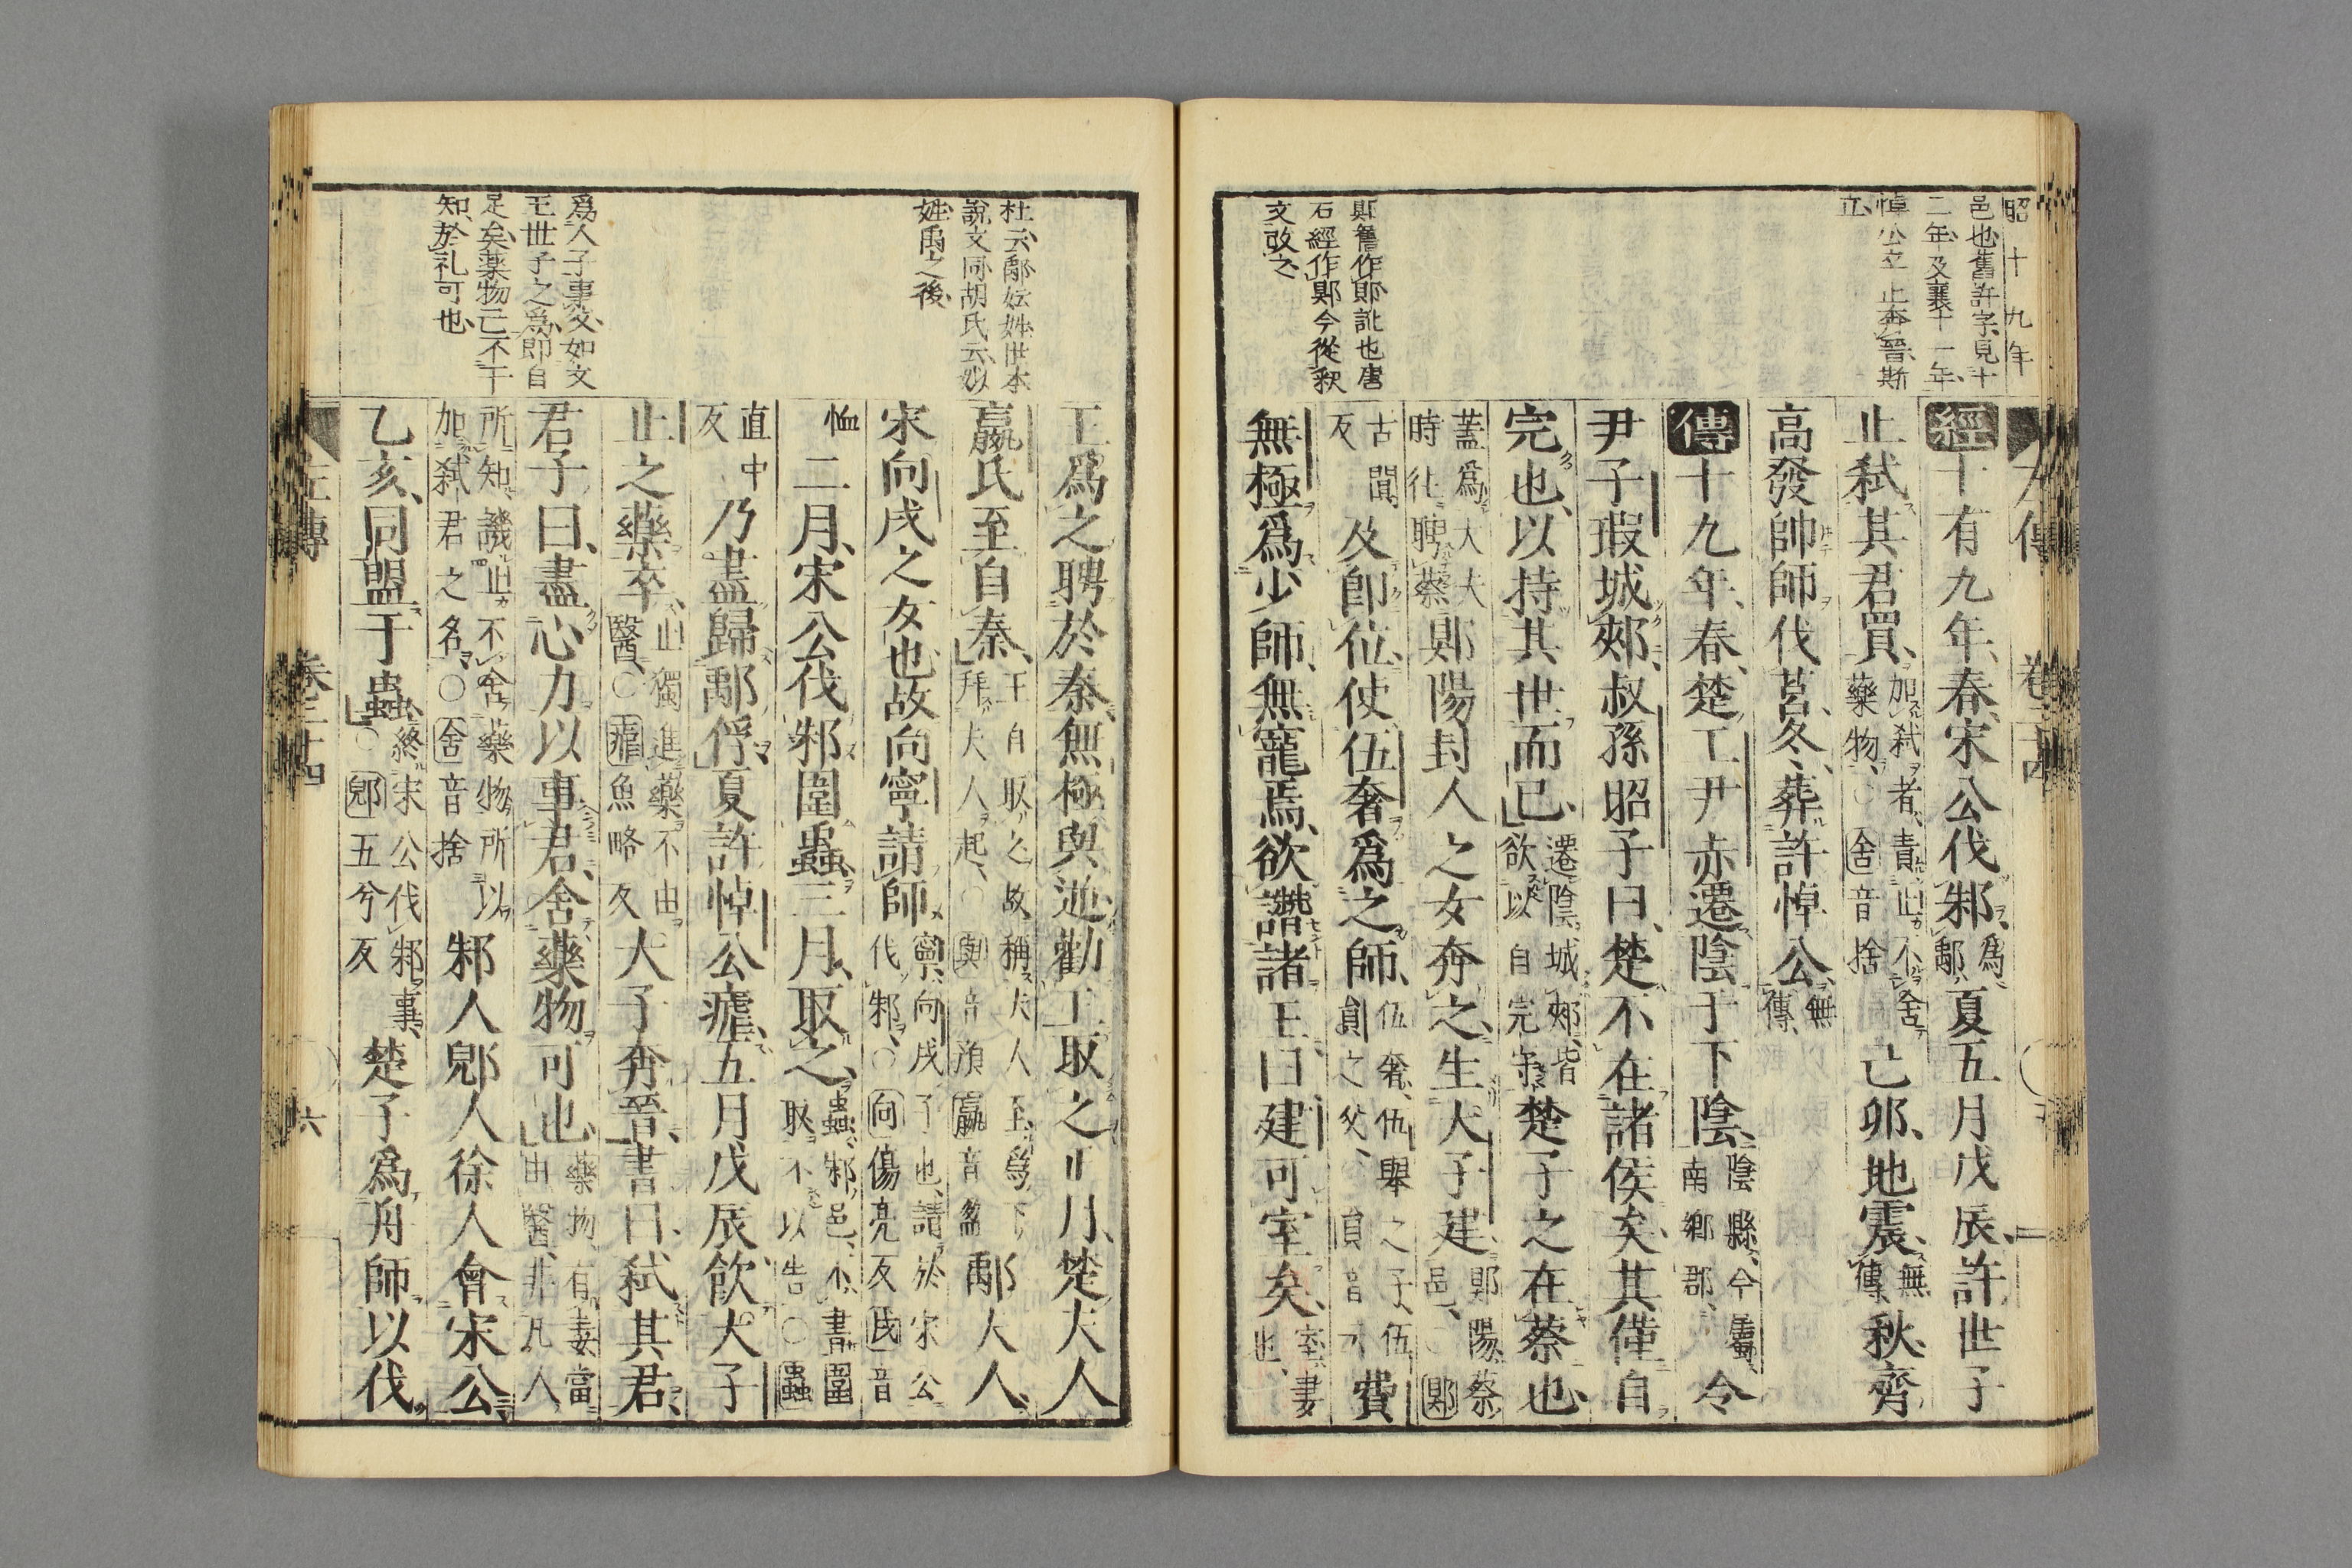 昭十九年
邑也舊許字見十
二年及襄十一年
悼公立止奔晉斯
立
鄖舊作郥訛也唐
石經作鄖今從釈
文改之
經十有九年春宋公伐邾爲鄅夏五月戊辰許世子
止弒其君買加弒者責止不舍藥物○舍音捨己卯地震無傳秋齊
高發帥師伐莒冬葬許悼公無傳
傳十九年春楚工尹赤遷陰于下陰陰縣今屬南鄉郡令
尹子瑕城郟叔孫昭子曰楚不在諸侯矣其僅自
完也以持其世而已遷陰城郟皆欲以自完守楚子之在蔡也
蓋爲大夫時往聘蔡郹陽封人之女奔之生大子建郹陽蔡邑○郹
古闃反及即位使伍奢爲之師伍奢伍舉之子伍員之父費
無極爲少師無寵焉欲譖諸王曰建可室矣室妻也
杜云鄅妘姓世本
說文同胡氏云姒
姓禹之後
爲人子事父如文
王世子之爲即自
足矣薬物己不干
知於礼可也
王爲之聘於秦無極與逆勸王取之正月楚夫人
嬴氏至自秦王自取之故稱夫人至爲下拜夫人起○與音預嬴音盈鄅夫人
宋向戌之女也故向寧請師寧向戌子也請於宋公伐邾○向傷亮反戌音
恤二月宋公伐邾圍蟲三月取之蟲邾邑不書圍取不以告○蟲
直中反乃盡歸鄅俘夏許悼公瘧五月戊辰飲大子
止之藥卒止獨進藥不由醫○瘧魚略反大子奔晉書曰弒其君
君子曰盡心力以事君舍藥物可也藥物有毒當由醫非凡人
所知譏止不舍藥物所以加弒君之名○舍音捨邾人郳人徐人會宋公
乙亥同盟于蟲終宋公伐邾事○郳五兮反楚子爲舟師以伐
左傳　卷二十四　六